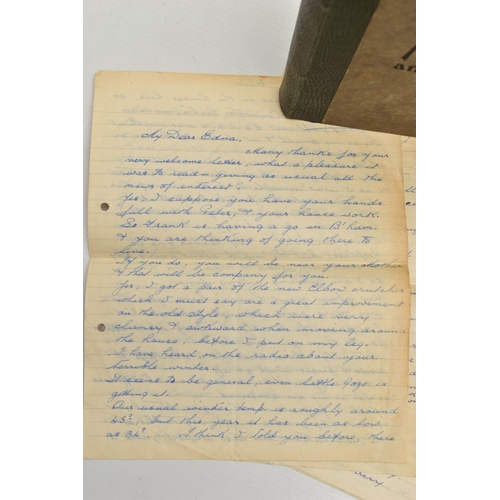 My Dear Edna,
Many thanks for your
very welcome letter, what a pleasure it
was to read - giving as usual all the
news of enterest.
Yes, I suppose you have your hands
full with Peter, & your house work.
So Frank is having a go in B'ham.
& you are thinking of going there to
live.
If you do, you will be near your Mother
& that will be company for you.
Yes, I got a pair of the new Elbow crutches
which I must say are a great improvement
on the old style, which were very
clumsy & awkward when moving around
the house, before I put on my leg.
I have heard on the radio about your
terrible winter.
It seems to be general, even little Gozo is
getting it.
Our usual winter temp is roughly around
45°. but this year it has been as low
as 34°. I think I told you before, there
an
very